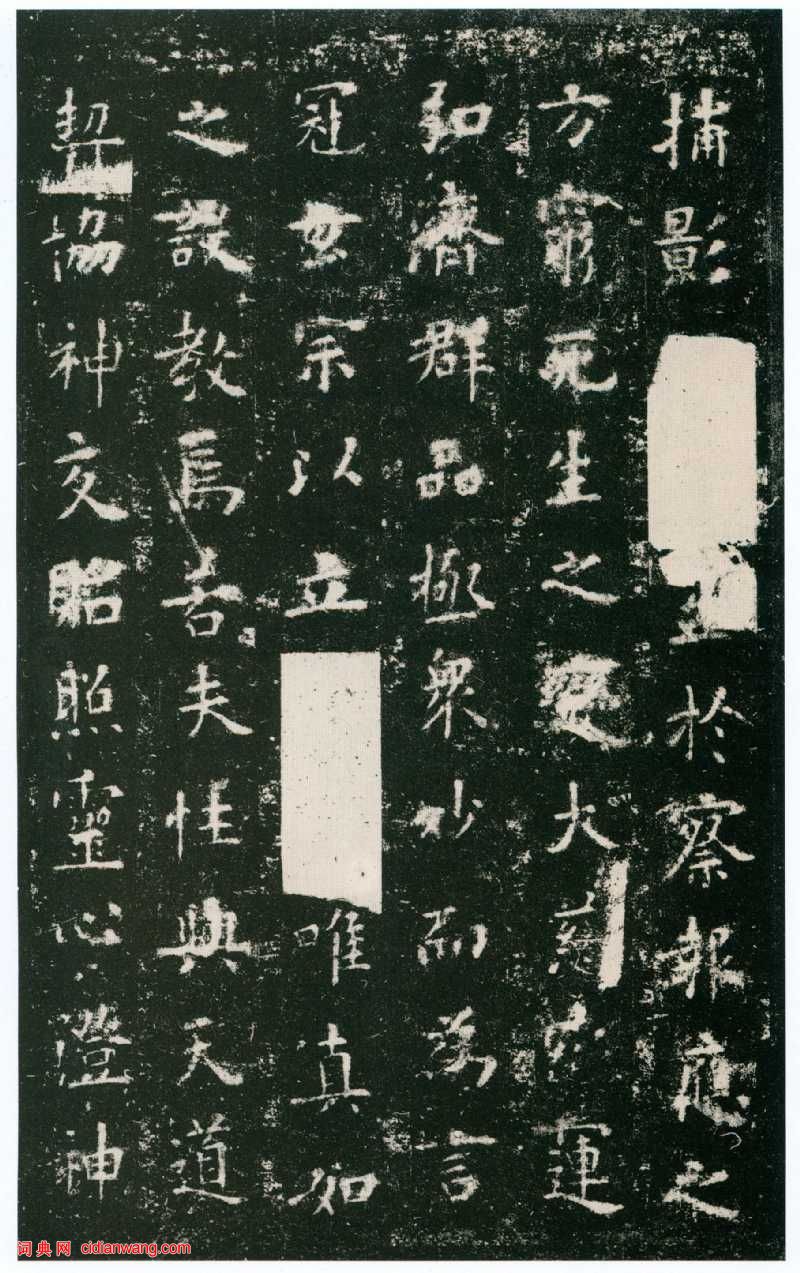 捕影
於察報應之
方窮死生之變大慈弘運
弘濟群品極眾妙而為言
冠玄宗以立
唯真如
之設教焉若夫性與天道
契協神交貽照靈心澄神
词典网 cidianwang.com